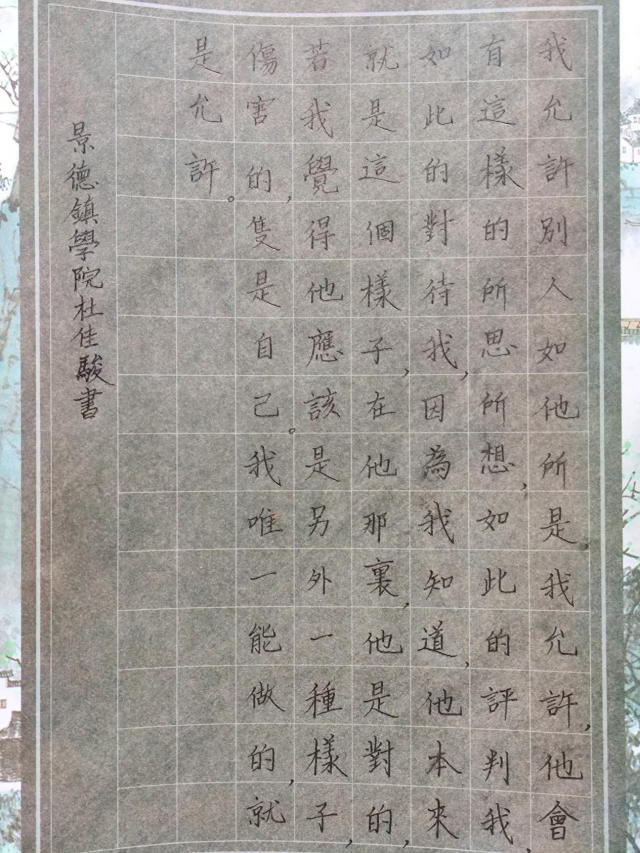 我允許別人如他所是我允許,他會
有這樣的所思所想,如此的評判我,
如此的對待我,因為我知道,他本來
就是這個樣子,在他那裏,他是對的,
若我覺得他應該是另外一種樣子,
傷害的,隻是自己。我唯一能做的,就
是允許。
景德鎮學院杜佳駿書